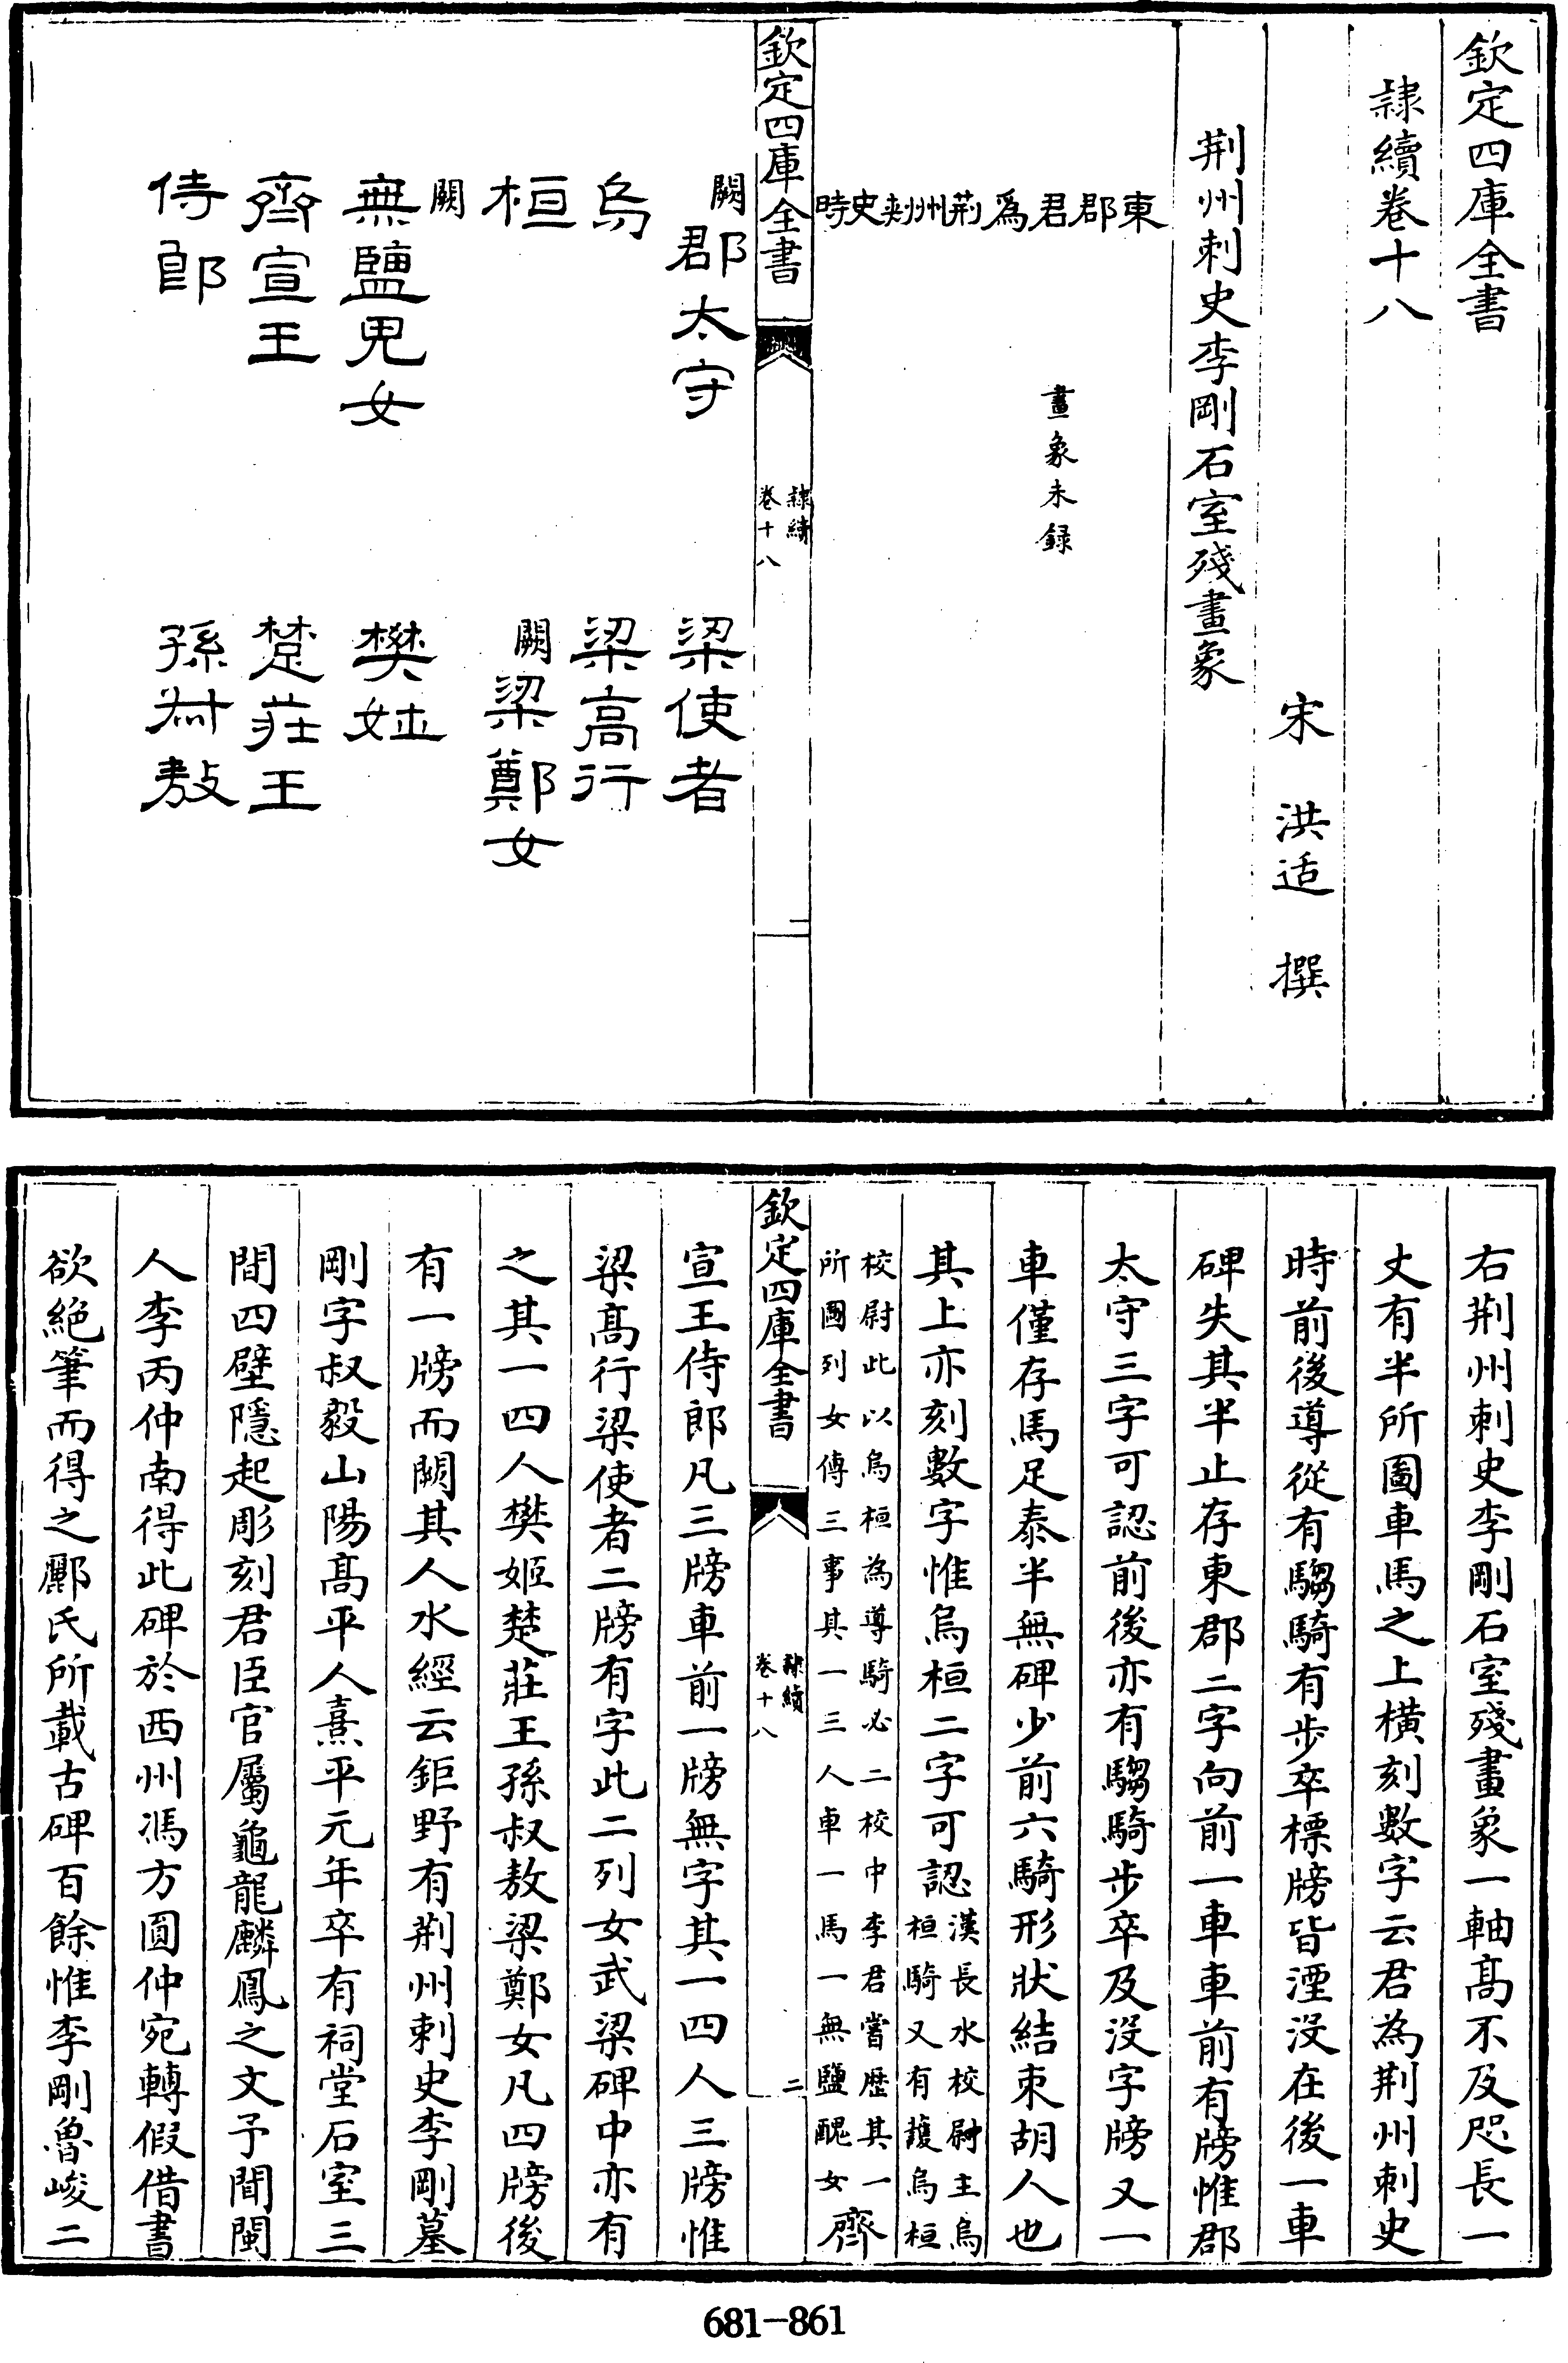 欽定四庫全書
隸續卷十八
宋 洪适 撰
荆州刺史李剛石室殘畫象
東郡君爲荆州刺史時
畫象未録
欽定四庫全書
隸續
卷十八
一
闕郡太守
梁使者
烏
梁高行
桓
闕梁鄭女
闕
無鹽䀏女
樊姃
齊宣王
楚莊王
侍郎
孫叔敖
右荆州刺史李剛石室殘畫象一軸髙不及咫長一
丈有半所圖車馬之上横刻數字云君為荆州刺史
時前後導從有騶騎有步卒標牓皆湮沒在後一車
碑失其半止存東郡二字向前一車車前有牓惟郡
太守三字可認前後亦有騶騎步卒及沒字牓又一
車僅存馬足泰半無碑少前六騎形狀結束胡人也
其上亦刻數字惟烏桓二字可認漢長水校尉主烏
桓騎又有䕶烏桓
校尉此以烏桓為導騎必二校中李君嘗歴其一
所圖列女傳三事其一三人車一馬一無鹽醜女齊
欽定四庫全書
隸續
卷十八
二
宣王侍郎凡三牓車前一牓無字其一四人三牓惟
梁髙行梁使者二牓有字此二列女武梁碑中亦有
之其一四人樊姬楚莊王孫叔敖梁鄭女凡四牓後
有一牓而闕其人水經云鉅野有荆州刺史李剛墓
剛字叔毅山陽髙平人熹平元年卒有祠堂石室三
間四壁隱起彫刻君臣官屬龜龍麟鳳之文予聞閩
人李丙仲南得此碑於西州馮方圓仲宛轉假借書
欲絶筆而得之酈氏所載古碑百餘惟李剛魯峻二
681-861